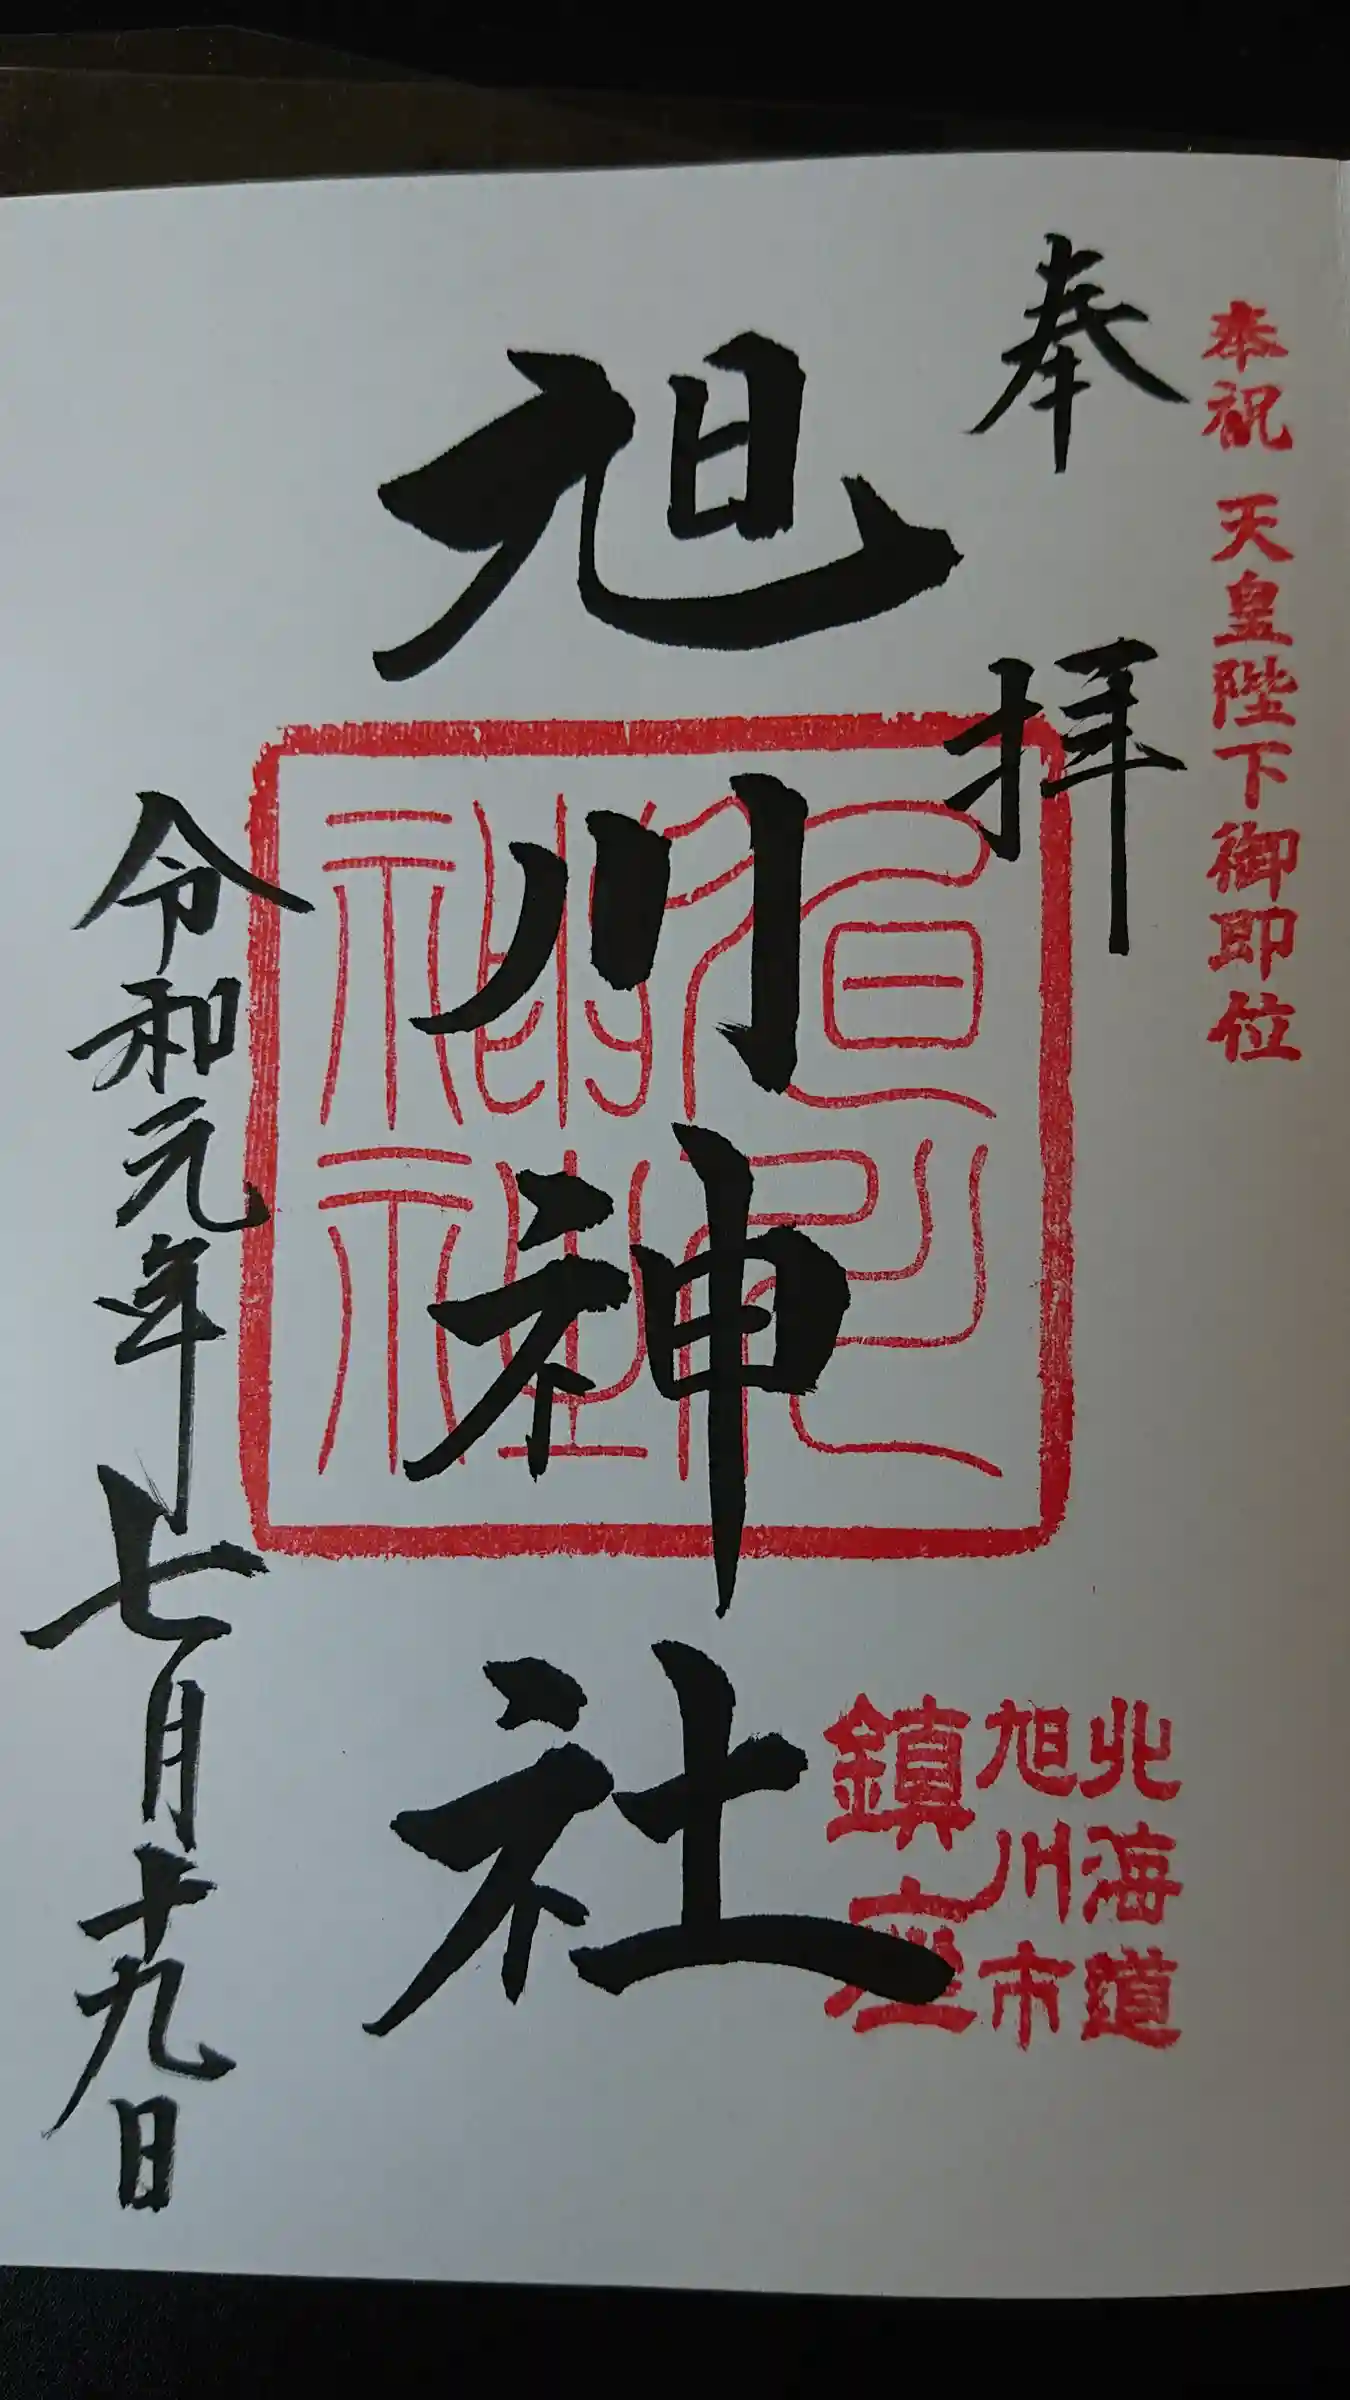 奉祝 天皇陛下御即位
奉拝
北海道
旭川市
鎮座
旭川神社
令和元年七月十九日